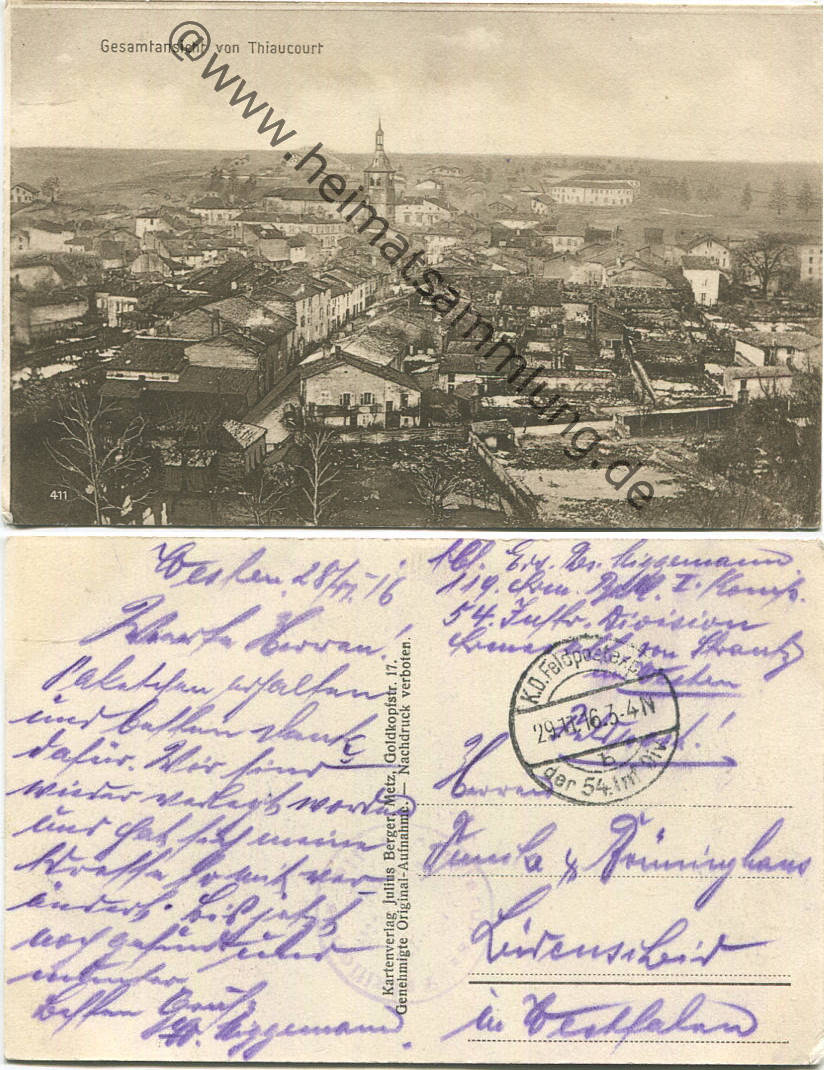 Gesamtansicht von Thiaucourt
@www.heimatsammlung.de
411
Westen, 28/11. 16
Werte Herren!
Paketchen erhalten
und besten Dank
dafür. Wir sind
wieder verlegt worden
und hat sich meine
Adresse somit ver-
ändert. Bis jetzt
noch gesund und
munter.
Besten Gruß
Niggemann.
Kartenverlag Julius Berger, Metz, Goldkopfstr. 17.
Genehmigte Original-Aufnahme. — Nachdruck verboten.
Niggemann
119. I. Komp.
54. Inftr. Division
von Strantz
Westen
K.D. Feldpostexp.
29.11.16.3-4N
b
der 54. Inf. Div.
Herren
& Brüninghaus
Lüdenscheid
in Westfalen